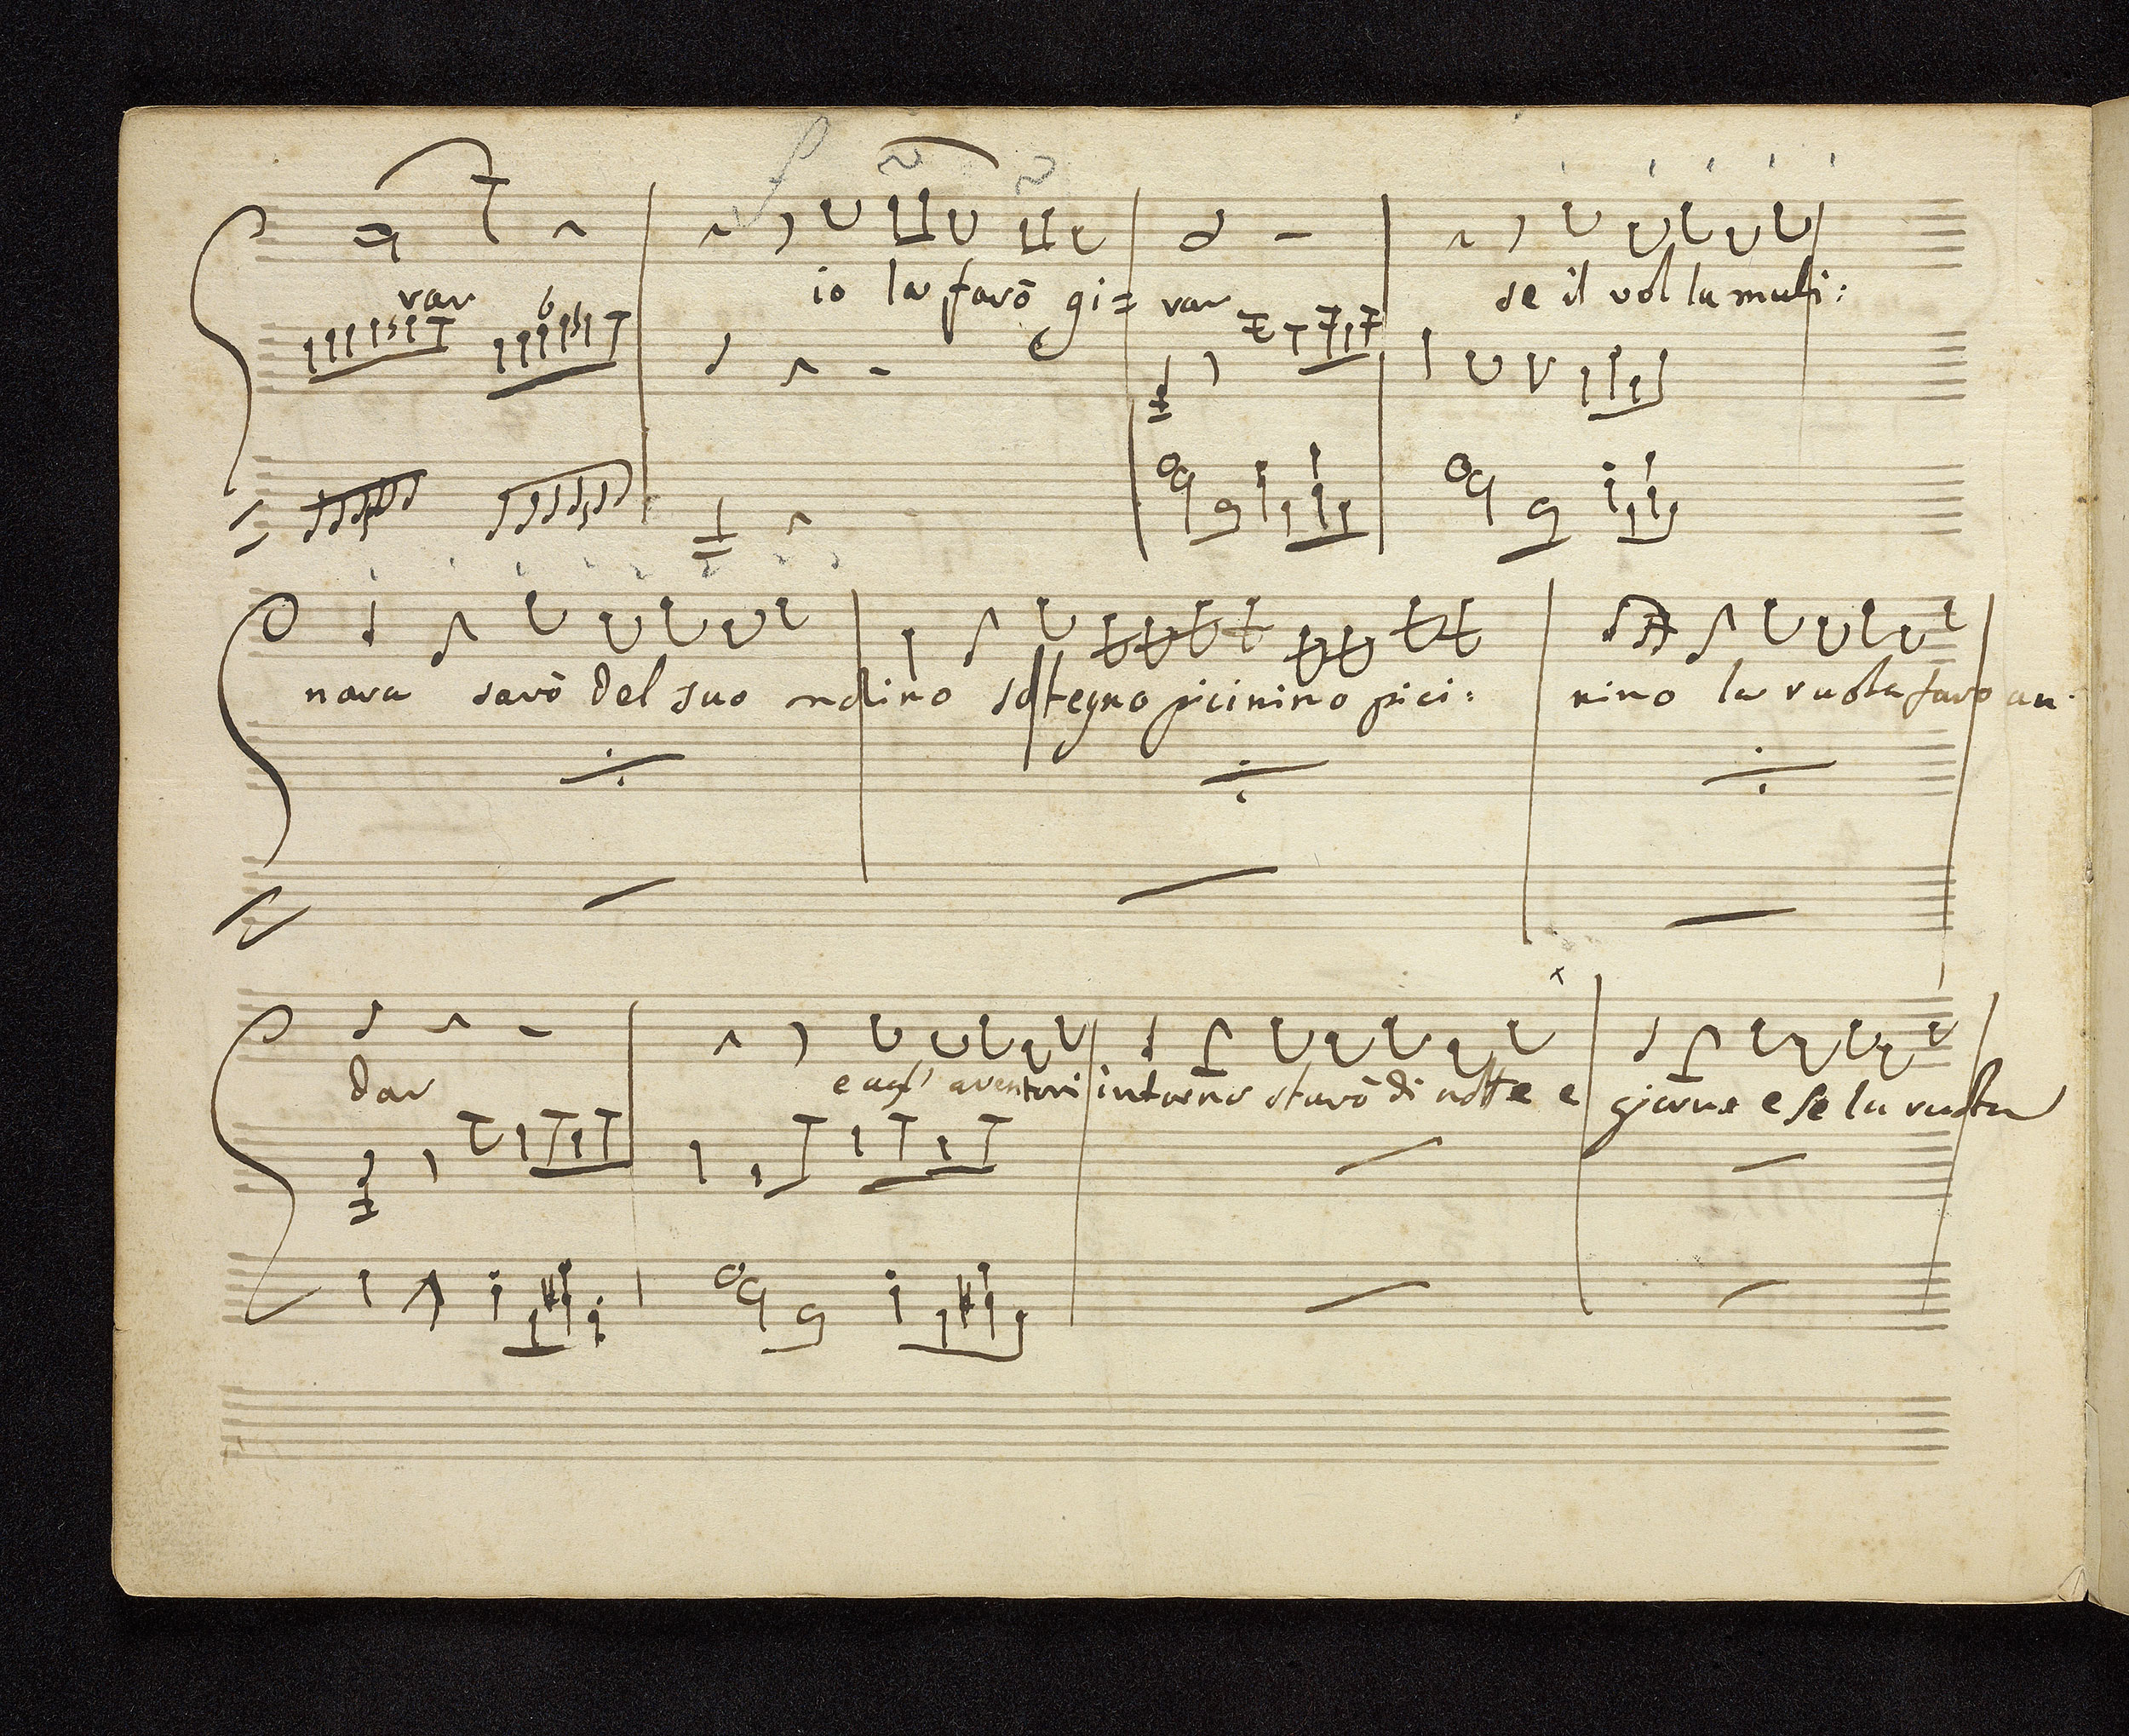 rar io la farò gi= rar se il vol la muli:
nara sarò del suo molino sostegno picinino pici: nino la ruota farò an:
dar e agl' aventori intorno starò di notte e giorno e se la ruota